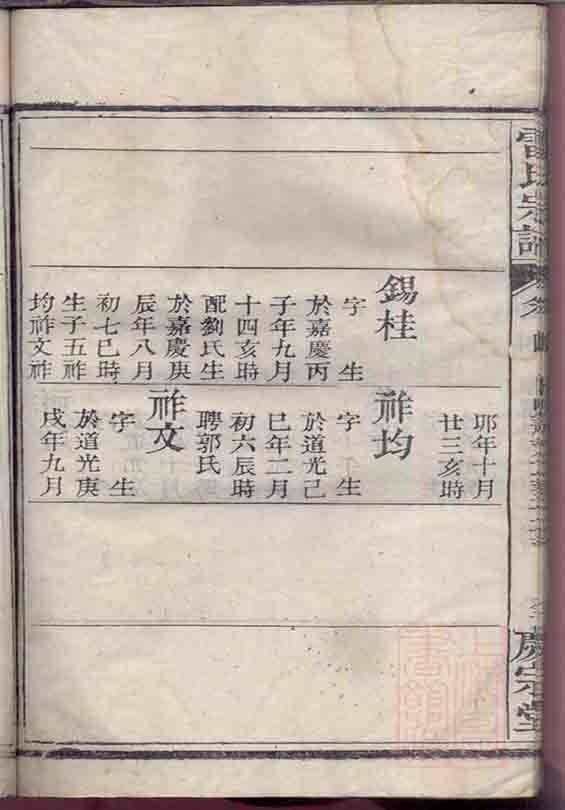 雷氏宗譜
慶宗堂
錫桂
字　生
於嘉慶丙
子年九月
十四亥時
配劉氏生
於嘉慶庚
辰年八月
初七巳時
生子五祚
均祚文祚
卯年十月
廿三亥時
祚均
字　生
於道光己
巳年二月
初六辰時
聘郭氏
祚文
字　生
於道光庚
戌年九月